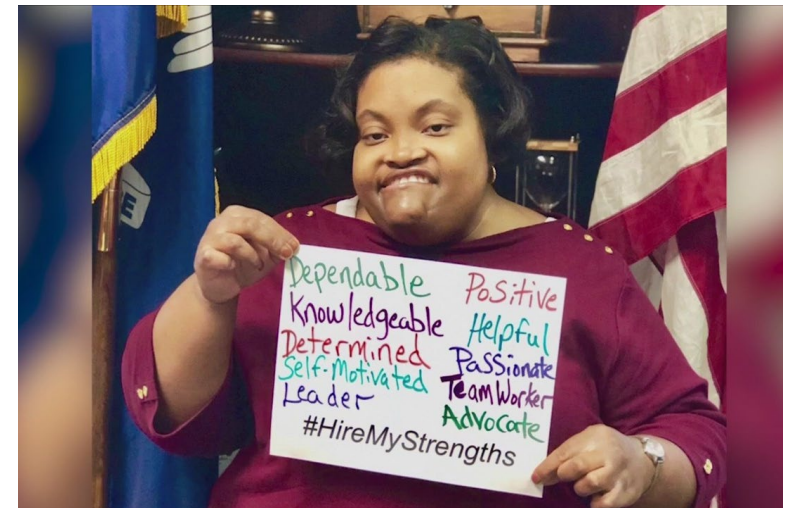 Dependable
Knowledgeable
Determined
Self-Motivated
Leader
Positive
Helpful
Passionate
TeamWorker
Advocate
#HireMyStrengths